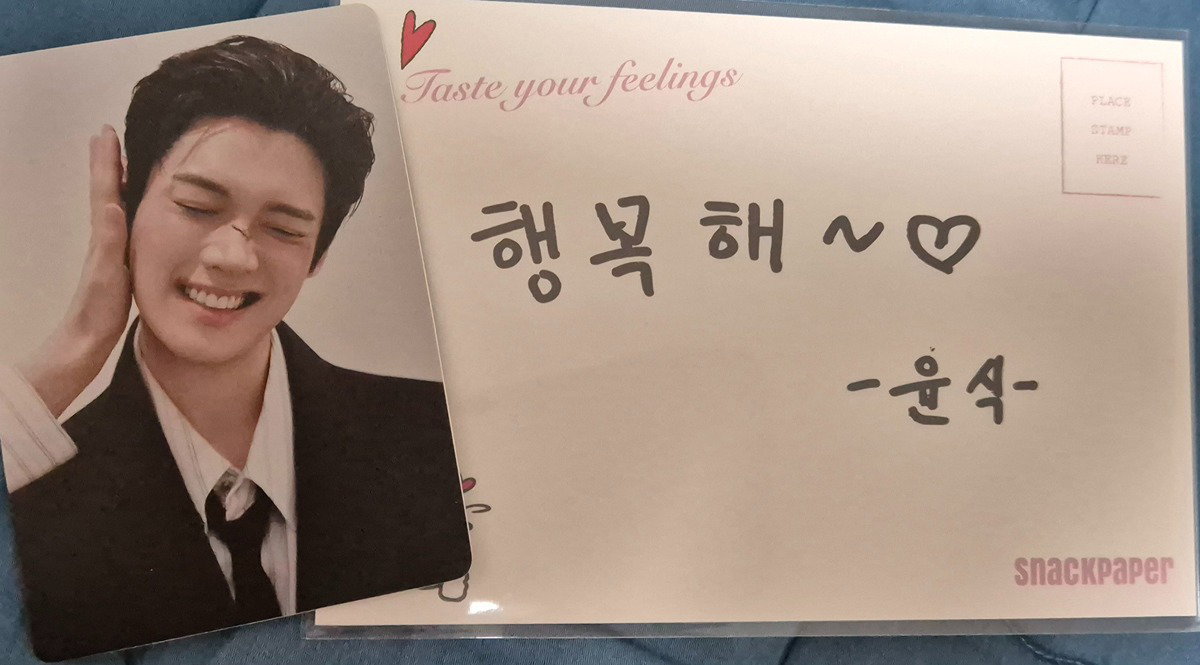 Taste your feelings
PLACE
STAMP
HERE
행복해~♡
-윤식-
snackpaper